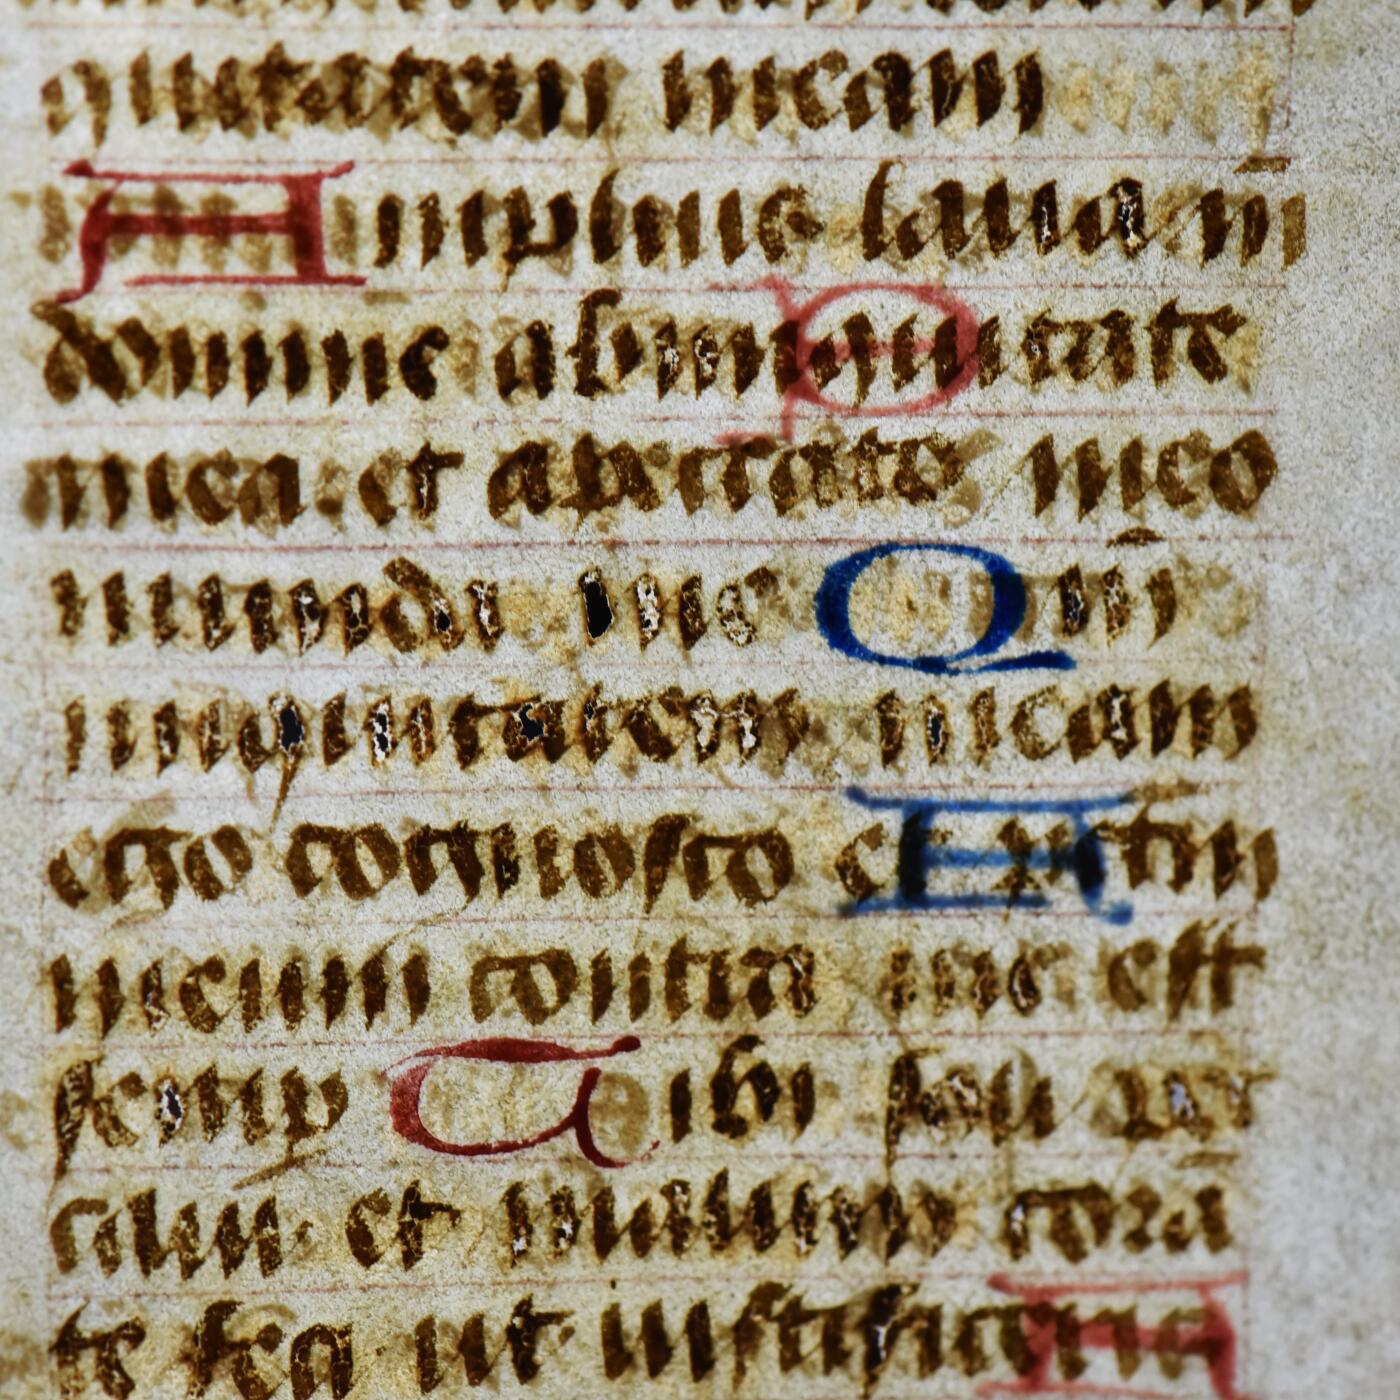 quitatem meam
Amplius laua mī
domine ab iniquitate
mea. et a peccato meo
munda me Qm̄
iniquitatem meam
ego cognosco et
meum contra me est
semp Tibi soli pec
caui. et malum corā
te feci ut iustifice